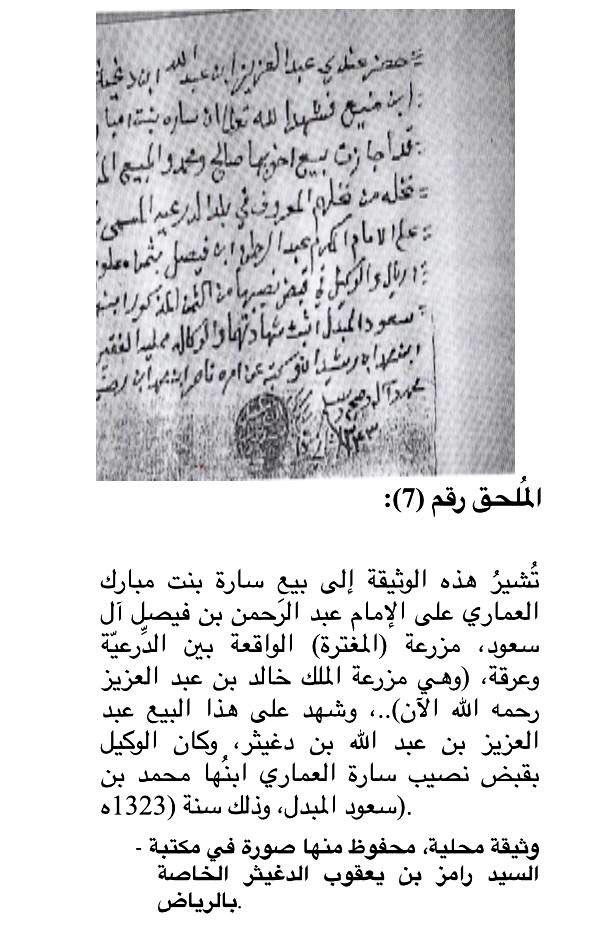 حضر عندي عبدالعزيز ابن عبدالله ابن دغيثر
ابن منيع فشهدا لله تعالى ان ساره بنت امبا
قد اجازت بيع اخويها صالح ومحمد والمبيع
نخله من نخلهم المعروف في بلد الدرعيه المسمى
على الامام المكرم عبدالرحمن ابن فيصل بثمن معلوم
ريال والوكيل في قبض نصيبها من الثمن المذكور ابنها
سعود المبدل اثبت شهادتهما والوكاله
وكتبه عن امره ناصر ابن
محمد وآله وصحبه وسلم
المُلحق رقم (7):
تُشيرُ هذه الوثيقة إلى بيع سارة بنت مبارك
العماري على الإمام عبد الرَحمن بن فيصل آل
سعود، مزرعة (المغترة) الواقعة بين الدِّرعيّة
وعرقة، (وهي مزرعة الملك خالد بن عبد العزيز
رحمه الله الآن)..، وشهد على هذا البيع عبد
العزيز بن عبد الله بن دغيثر، وكان الوكيل
بقبض نصيب سارة العماري ابنُها محمد بن
سعود المبدل، وذلك سنة (1323ه).
- وثيقة محلية، محفوظ منها صورة في مكتبة
السيد رامز بن يعقوب الدغيثر الخاصة
بالرياض.